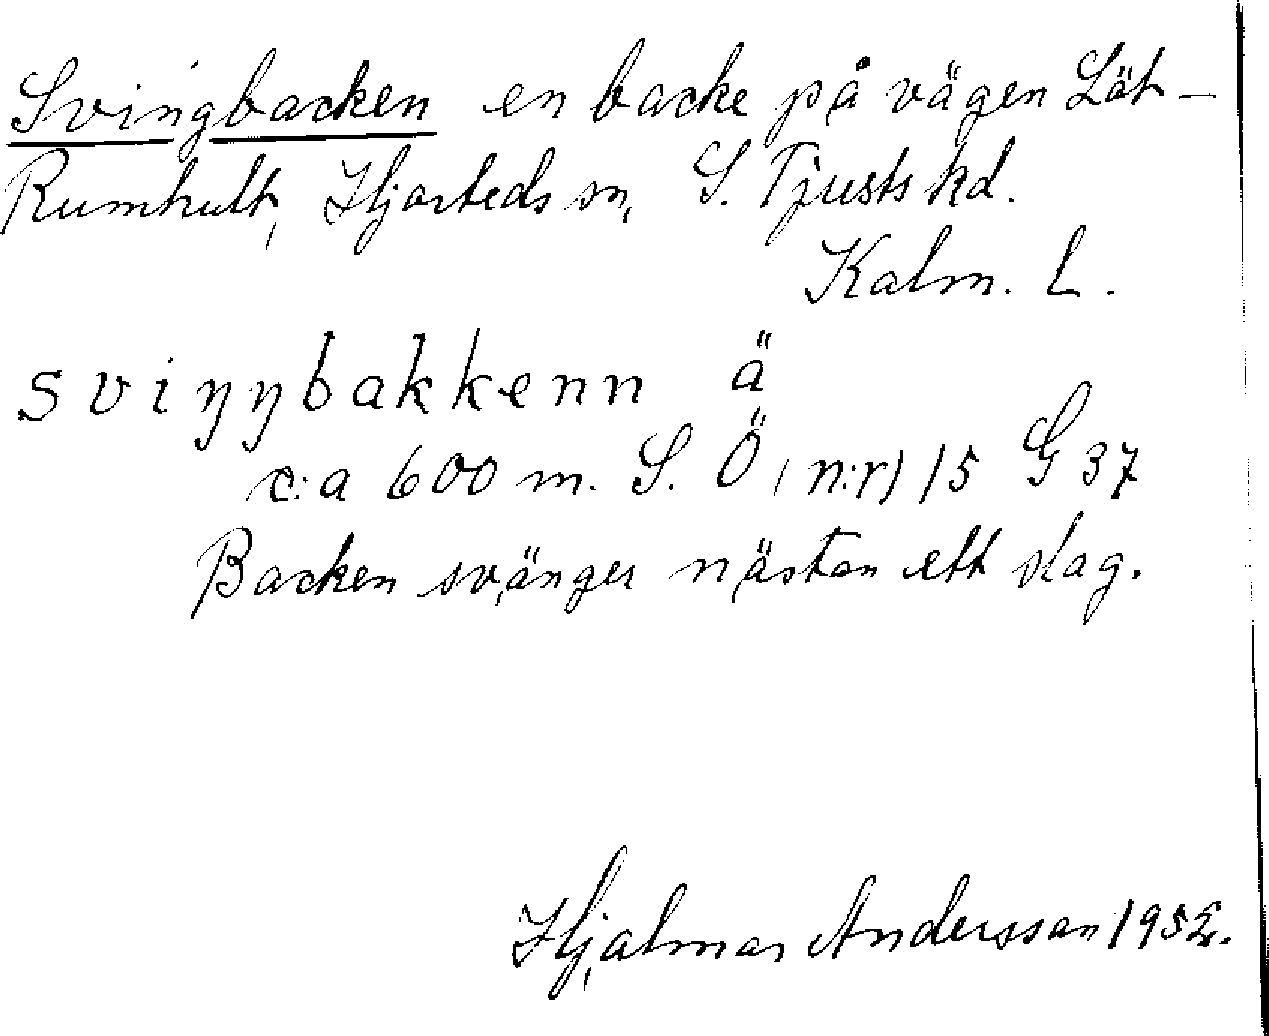 Svingbacken en backe på vägen Löt-
Rumhult, Hjorteds sn, S. Tjusts hd.
Kalm. L.
sviŋŋbakkenn ä
c:a 600 m. S. Ö, n:r) 15 G 37
Backen svänger nästan ett slag.
Hjalmar Andersson 1952.